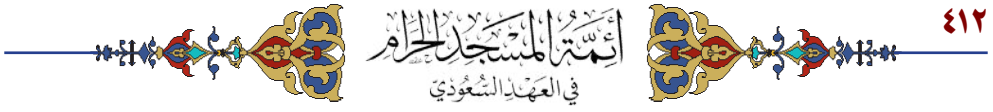 ٤١٢
أئمة المسجد الحرام
في العهد السعودي